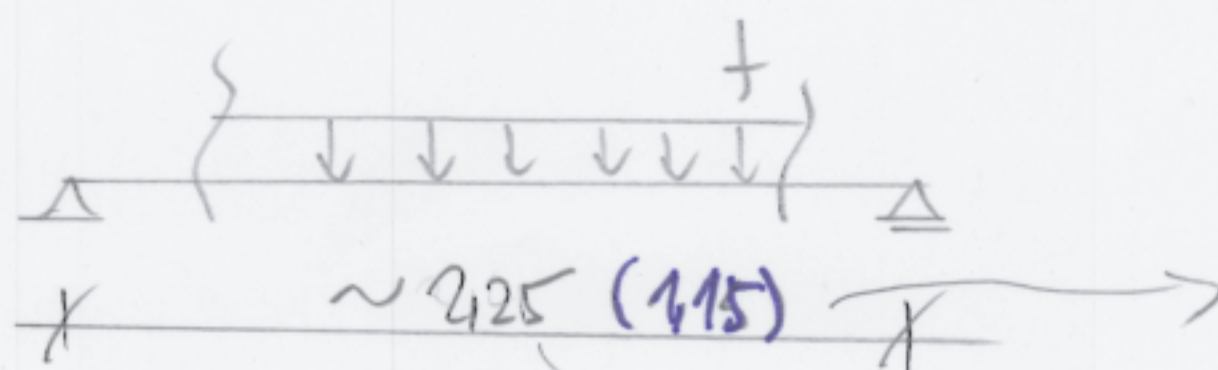 ~ 2,25 (1,15)